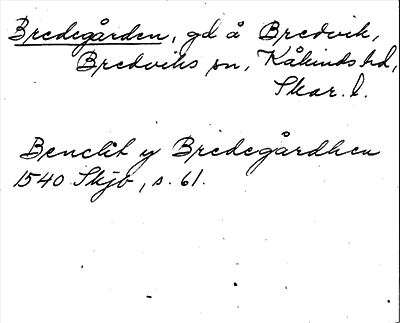 Bredegården, gd å Bredvik,
Bredviks sn, Kåkinds hd,
Skar. l.
Benckt y Bredegårdhen
1540 Skjb, s. 61.